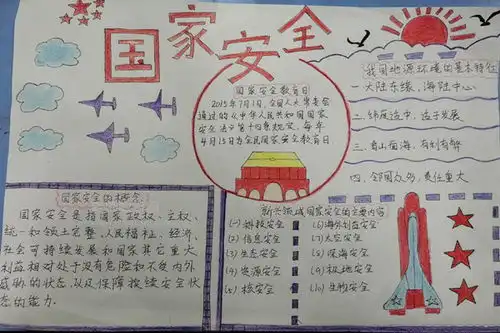 国家安全
国家安全教育日
2015年7月1日,全国人大常委会
通过的《中华人民共和国国家
安全法》第十四条规定,每年
4月15日为全民国家安全教育日
我国地源环境的基本特征
一 大陆东缘,海陆中心
二、纬度适中,适于发展
三、背山面海,有利有弊
四、邻国众多,责任重大
国家安全的概念
国家安全是指国家政权、主权、
统一和领土完整、人民福祉、经济、
社会可持续发展和国家其它重大
利益相对处于没有危险和不受内外
威胁的状态,以及保障持续安全状
态的能力.
新兴领域国家安全的主要内容
(1)科技安全
(2)信息安全
(3)生态安全
(4)资源安全
(5)核安全
(6)海外利益安全
(7)太空安全
(8)深海安全
(9)极地安全
(10)生物安全